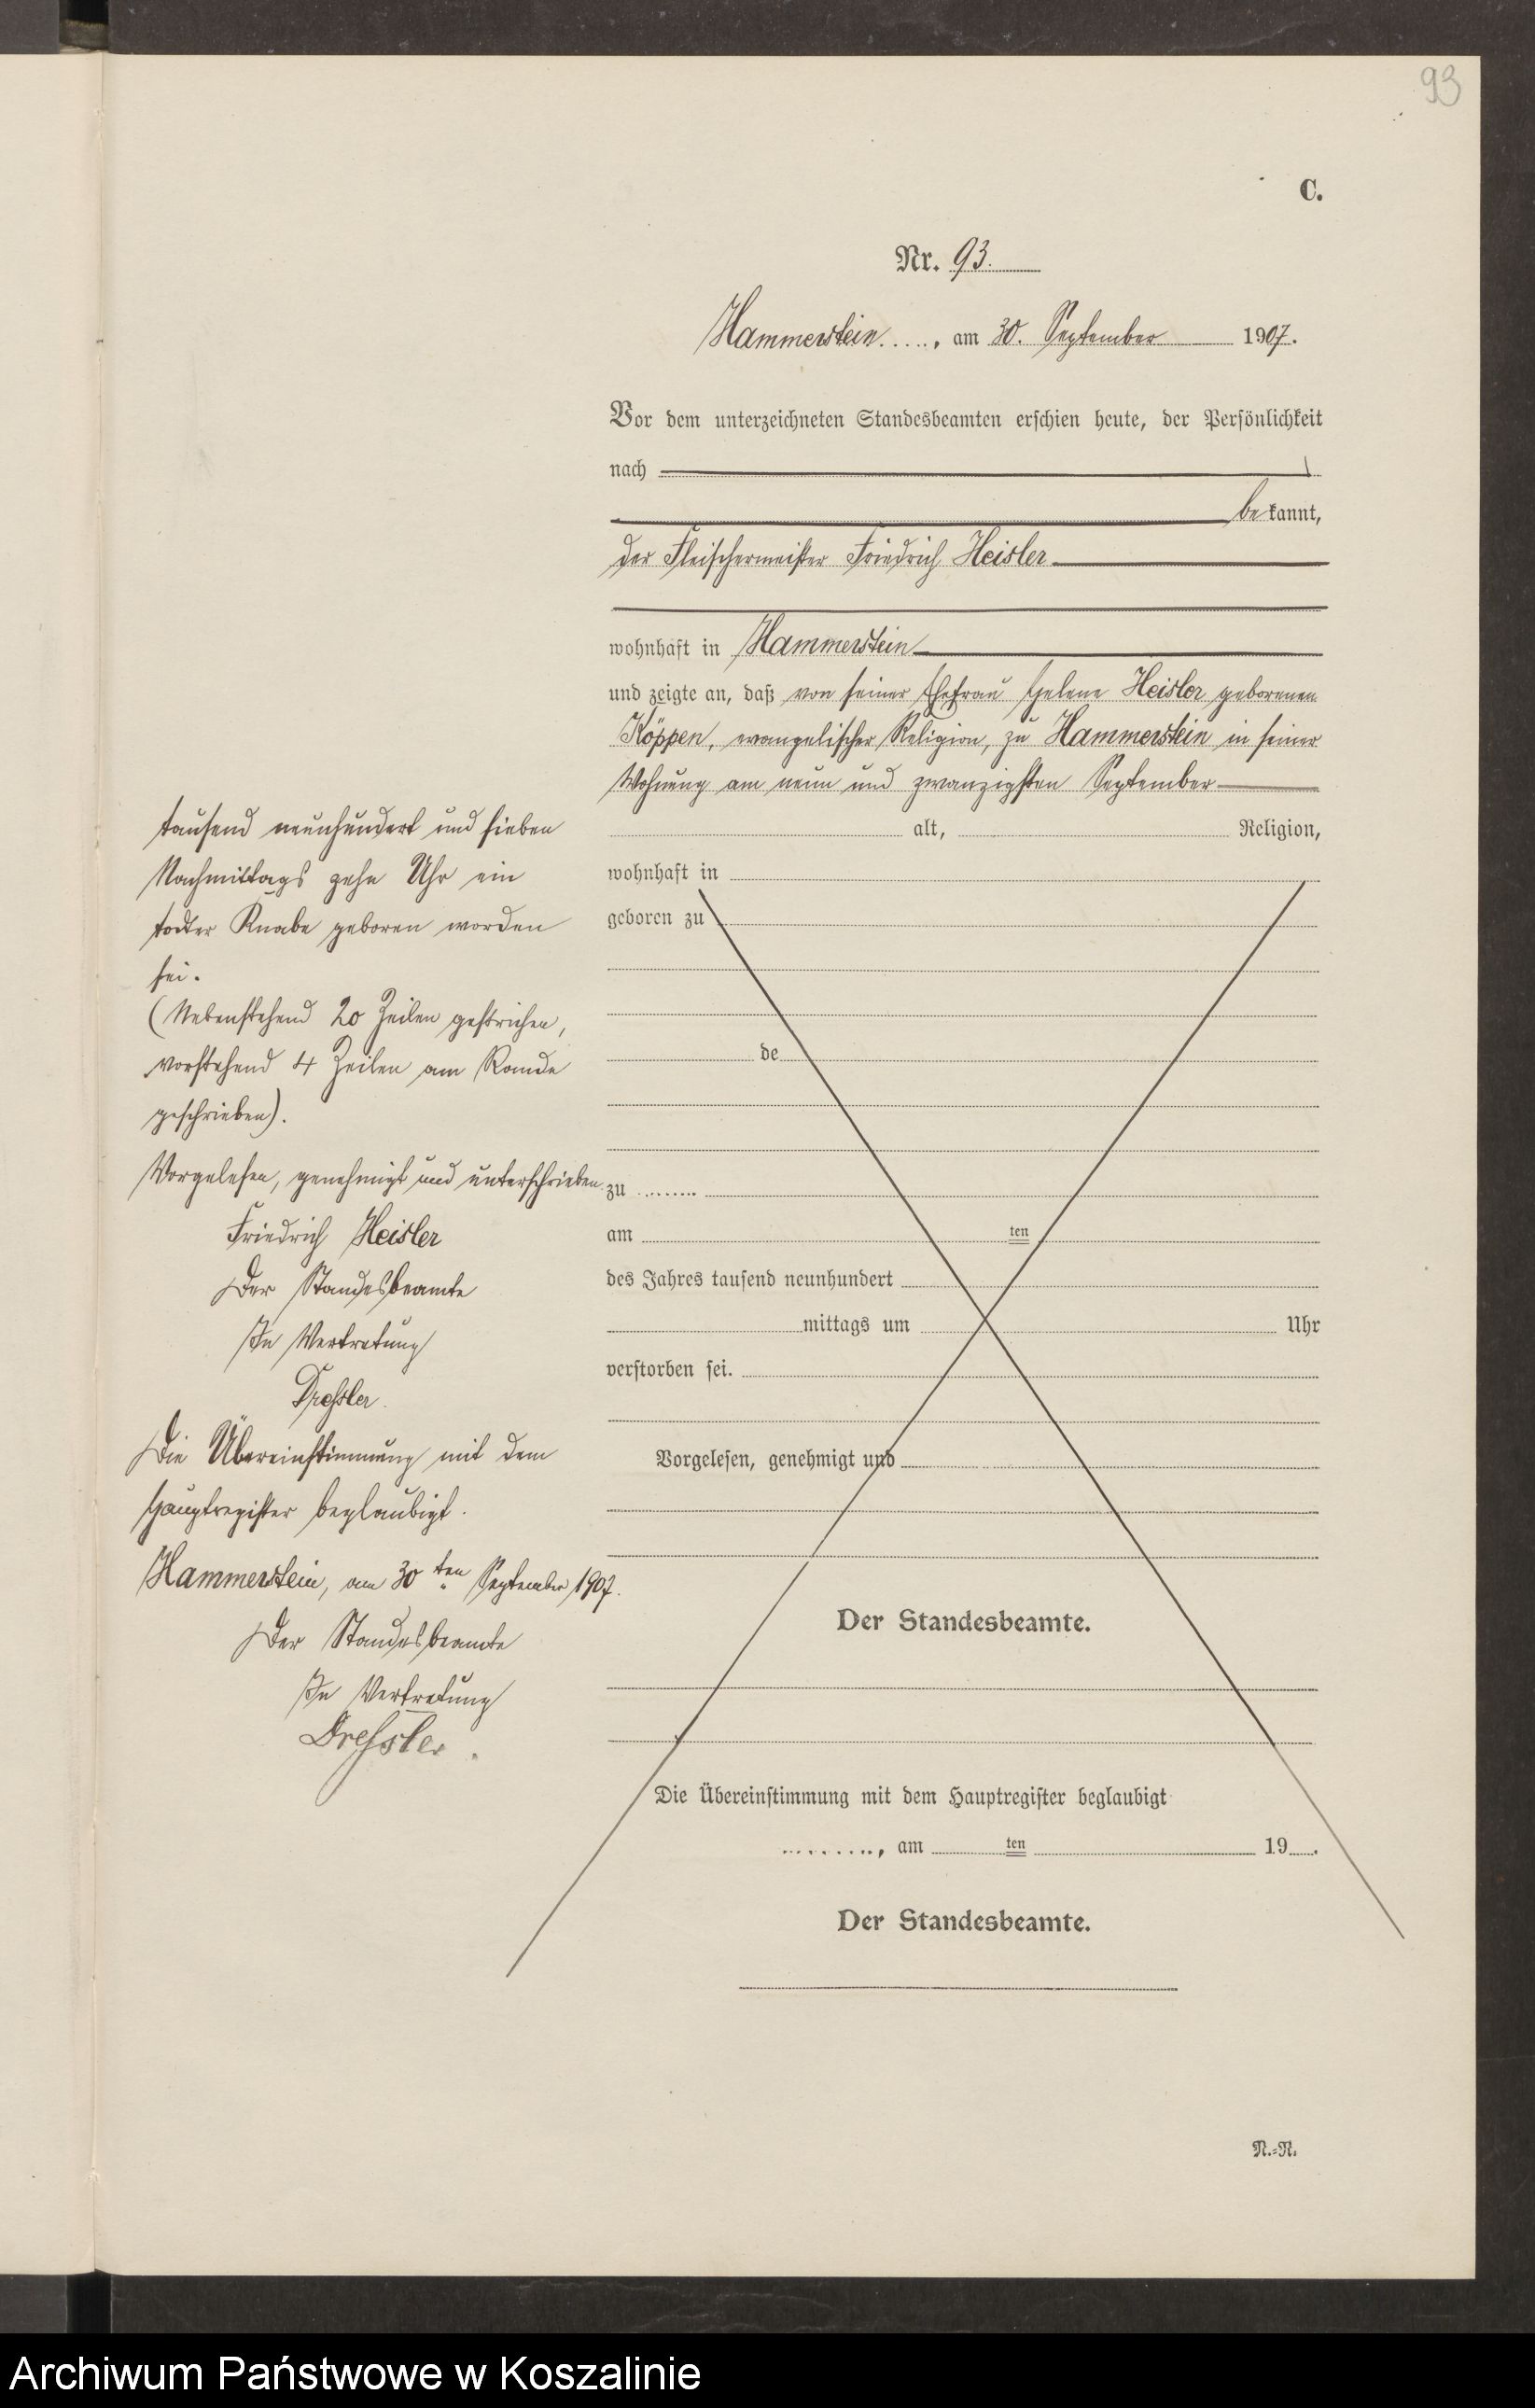 93
C.
Nr. 93.
Hammerstein....., am 30. September 1907.
Vor dem unterzeichneten Standesbeamten erschien heute, der Persönlichkeit
nach
be kannt,
der Fleischermeister Friedrich Heisler
wohnhaft in Hammerstein
und zeigte an, daß von seiner Ehefrau Helene Heisler geborenen
Köppen, evangelischer Religion, zu Hammerstein in seiner
Wohnung am neun und zwanzigsten September
tausend neunhundert und sieben
Nachmittags zehn Uhr ein
todter Knabe geboren worden
sei.
(Nebenstehend 20 Zeilen gestrichen,
vorstehend 4 Zeilen am Rande
geschrieben).
Vorgelesen, genehmigt und unterschrieben
Friedrich Heisler
Der Standesbeamte
In Vertretung
Dressler.
Die Übereinstimmung mit dem
Hauptregister beglaubigt.
Hammerstein, am 30ten September 1907.
Der Standesbeamte
In Vertretung
Dressler.
alt, Religion,
wohnhaft in
geboren zu
de
zu ........
am ten
des Jahres tausend neunhundert
mittags um Uhr
verstorben sei.
Vorgelesen, genehmigt und
Der Standesbeamte.
Die Übereinstimmung mit dem Hauptregister beglaubigt
........, am ten 19 .
Der Standesbeamte.
N.-R.
Archiwum Państwowe w Koszalinie